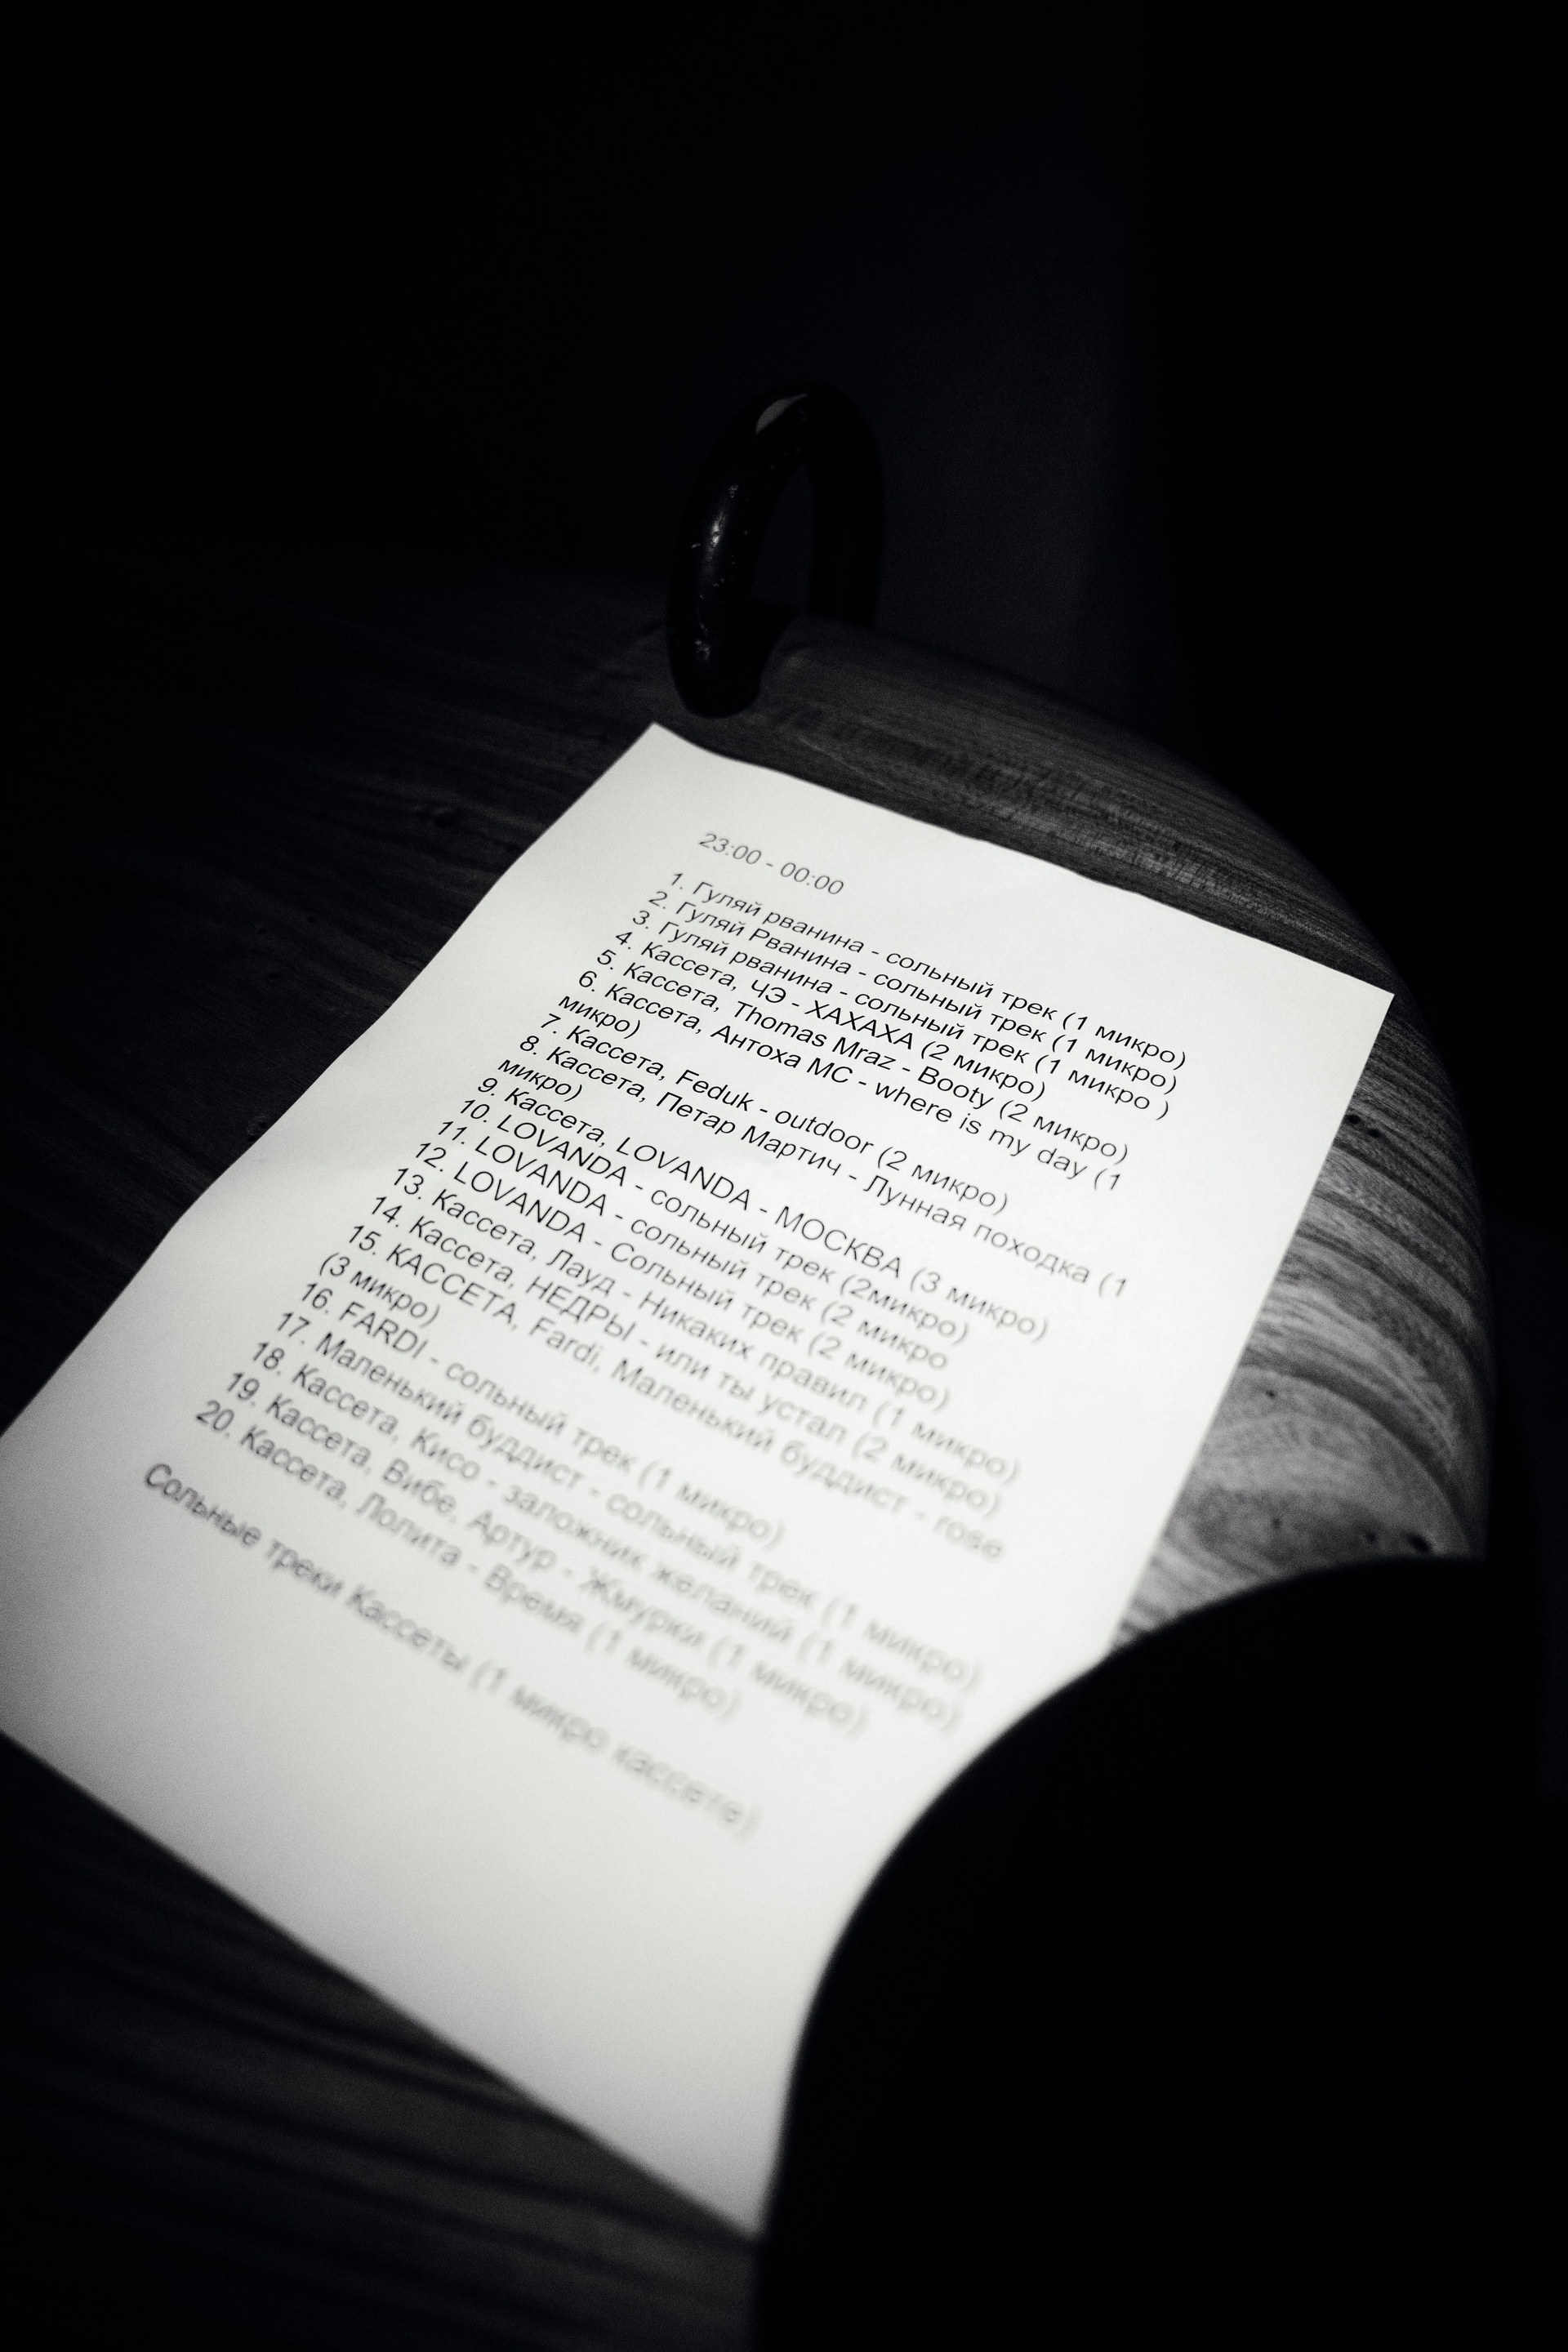 23:00 - 00:00
1. Гуляй рванина - сольный трек (1 микро)
2. Гуляй Рванина - сольный трек (1 микро)
3. Гуляй рванина - сольный трек (1 микро )
4. Кассета, ЧЭ - ХАХАХА (2 микро)
5. Кассета, Thomas Mraz - Booty (2 микро)
6. Кассета, Антоха МС - where is my day (1
микро)
7. Кассета, Feduk - outdoor (2 микро)
8. Кассета, Петар Мартич - Лунная походка (1
микро)
9. Кассета, LOVANDA - МОСКВА (3 микро)
10. LOVANDA - сольный трек (2микро)
11. LOVANDA - сольный трек (2 микро
12. LOVANDA - Сольный трек (2 микро)
13. Кассета, Лауд - Никаких правил (1 микро)
14. Кассета, НЕДРЫ - или ты устал (2 микро)
15. КАССЕТА, Fardi, Маленький буддист - rose
(3 микро)
16. FARDI - сольный трек (1 микро)
17. Маленький буддист - сольный трек (1 микро)
18. Кассета, Кисо - заложник желаний (1 микро)
19. Кассета, Вибе, Артур - Жмурки (1 микро)
20. Кассета, Лолита - Время (1 микро)
Сольные треки Кассеты (1 микро кассете)